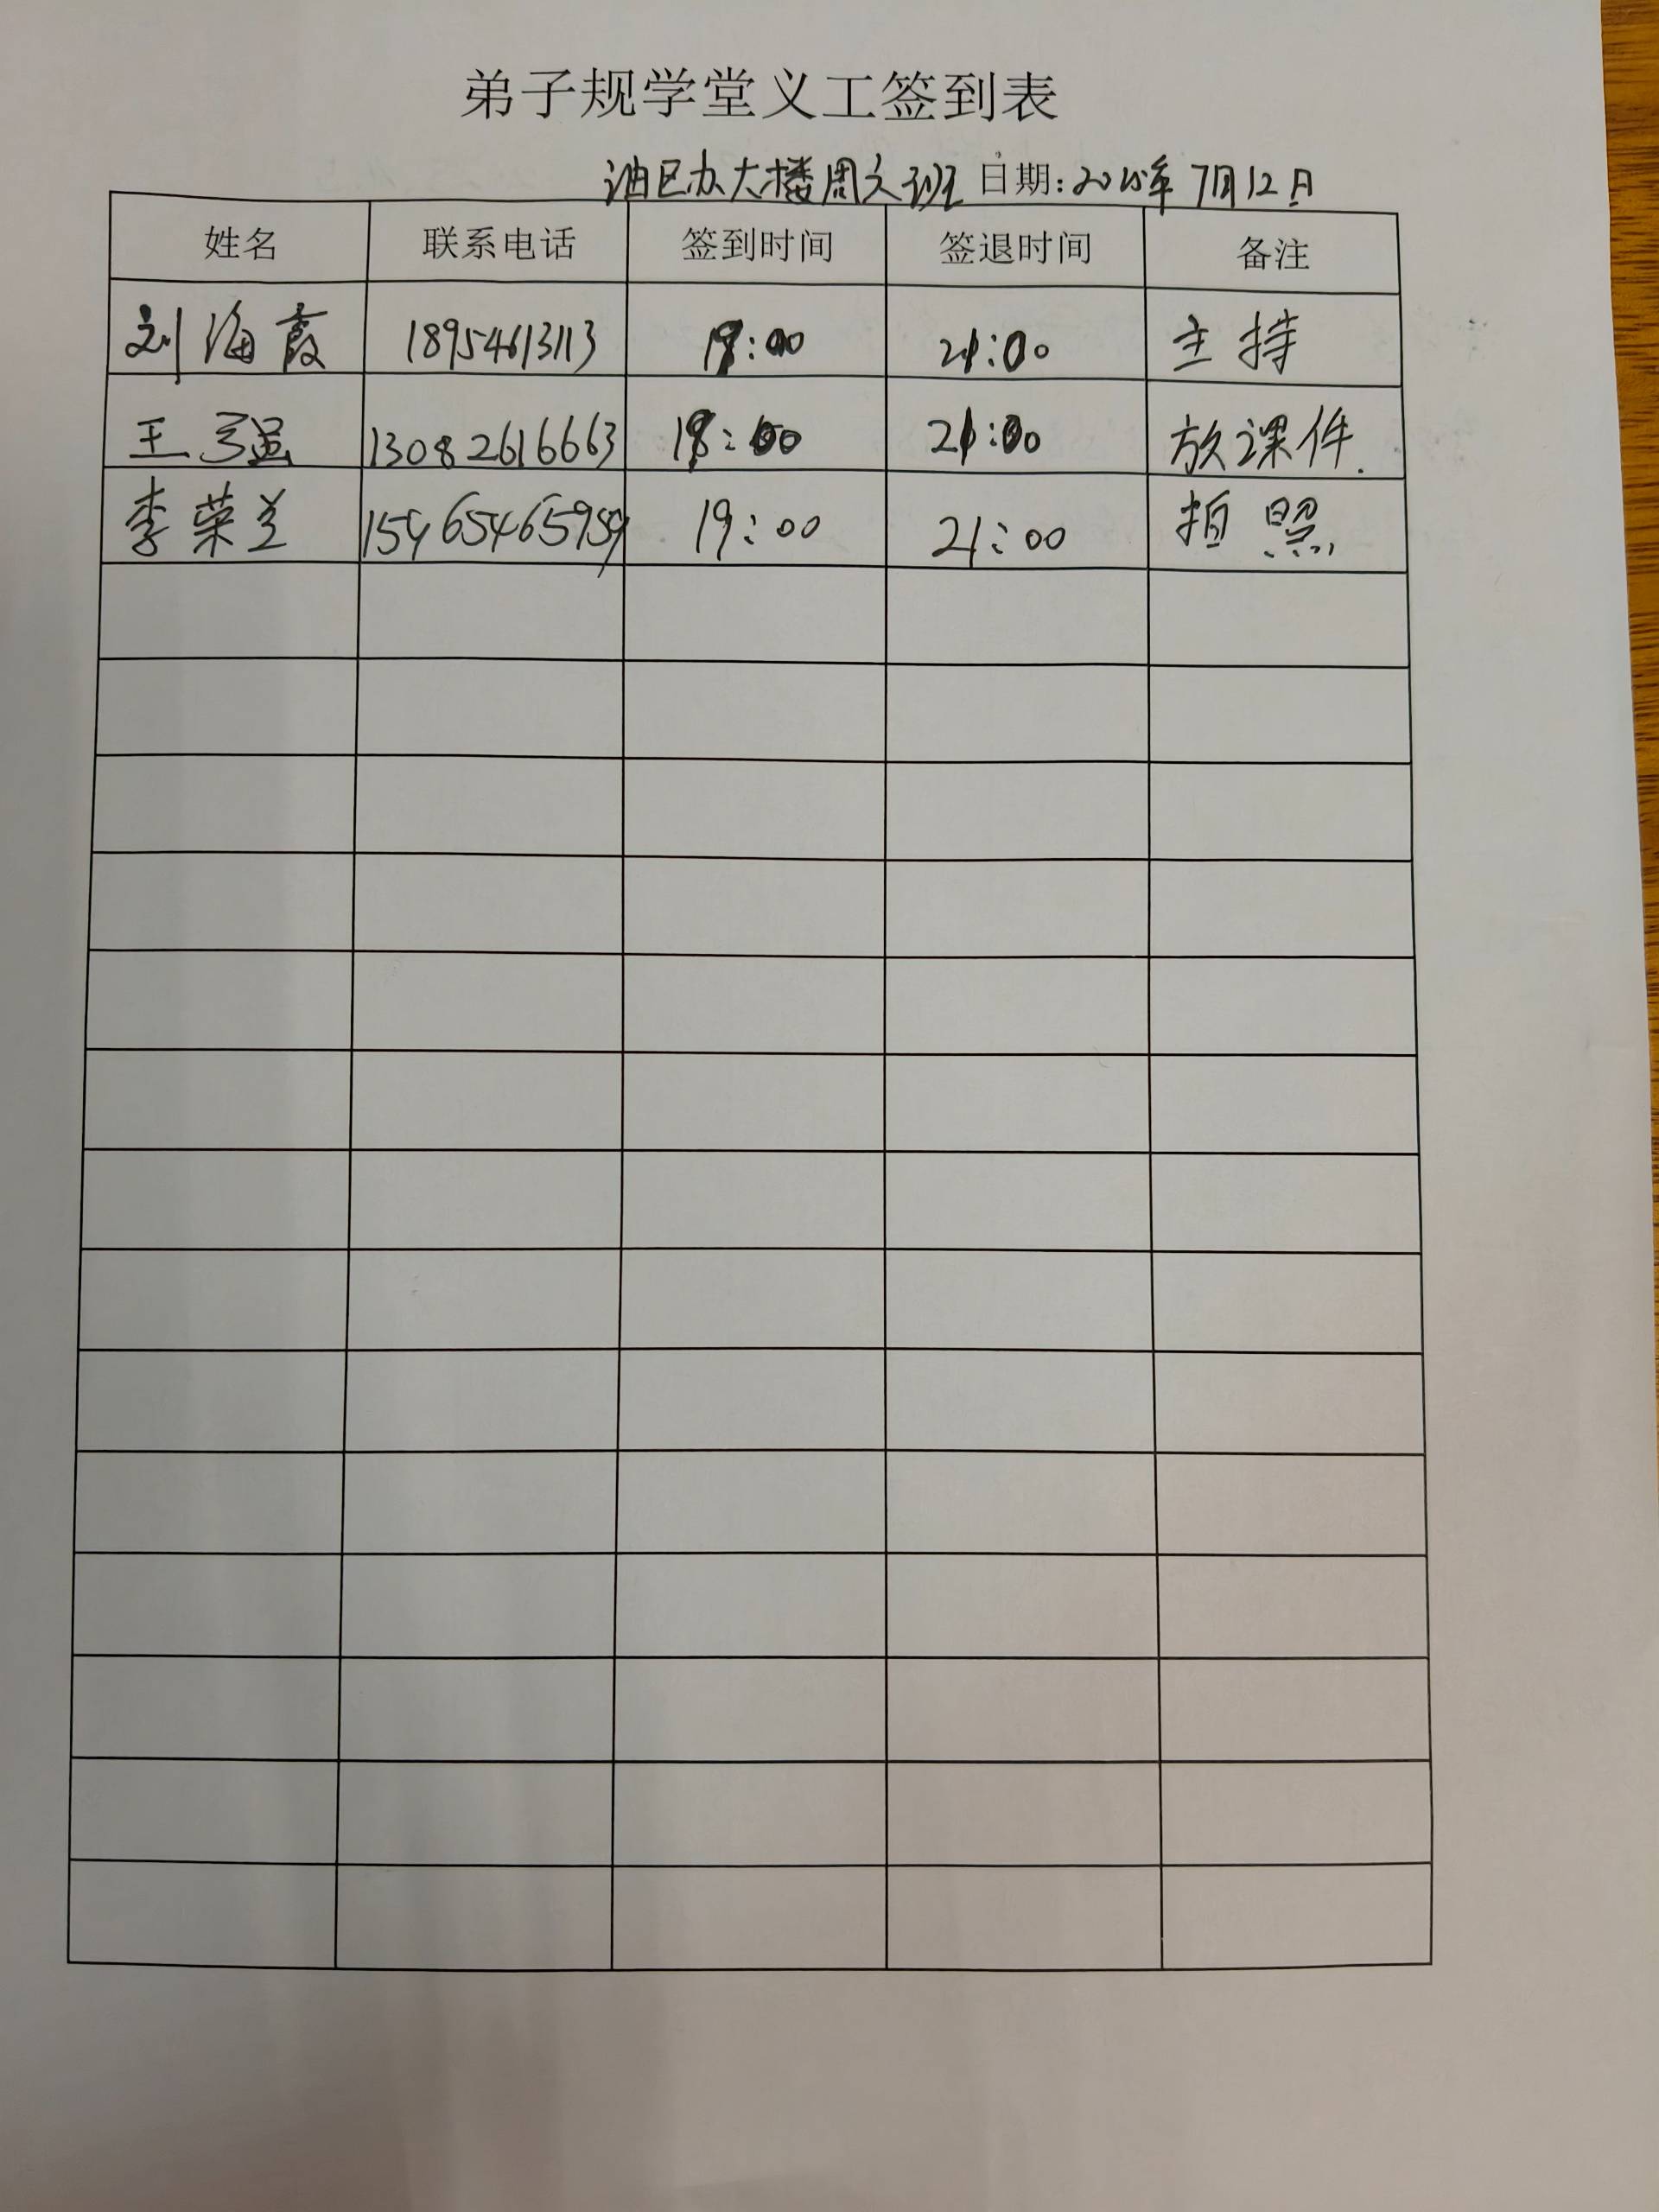 弟子规学堂义工签到表
油区办大楼周六班 日期: 2025年 7月12日
姓名 联系电话 签到时间 签退时间 备注
刘海霞 18954613113 19:00 21:00 主持
王强 13082616663 18:00 21:00 放课件.
李荣兰 21:00 拍照
19:00